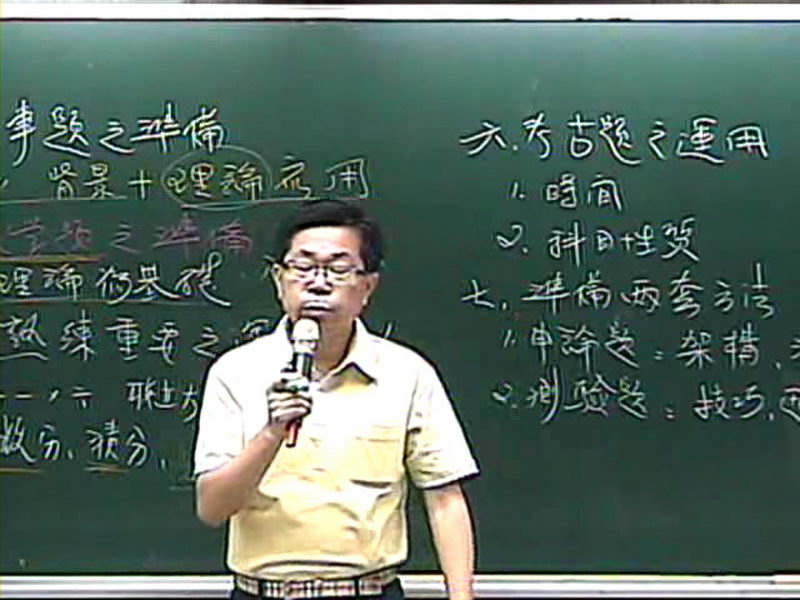 事題之準備
背景+理論應用
題之準備
理論為基礎
熟練重要之
微分、積分、
六.考古題之運用
1. 時間
2. 科目性質
七. 準備兩套方法
1. 申論題:架構、
2. 測驗題:技巧,